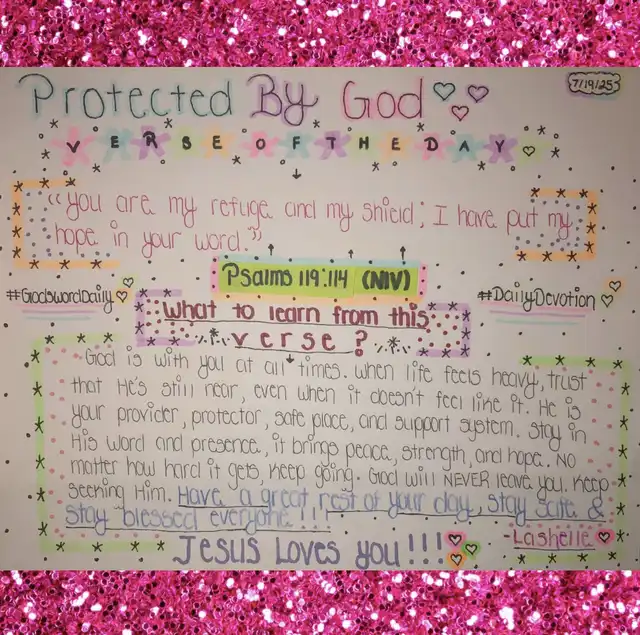 Protected By God
7/19/25
VERSE OF THE DAY
"You are my refuge and my shield; I have put my
hope in your word."
Psalms 119:114 (NIV)
#GodswordDaily
#DailyDevotion
What to learn from this
verse?
God is with you at all times. When life feels heavy, trust
that He's still near, even when it doesn't feel like it. He is
your provider, protector, safe place, and support system. Stay in
His word and presence, it brings peace, strength, and hope. No
matter how hard it gets, keep going. God will NEVER leave you. Keep
seeking Him. Have a great rest of your day, stay safe &
stay blessed everyone!!!
-Lashelle
Jesus Loves you!!!